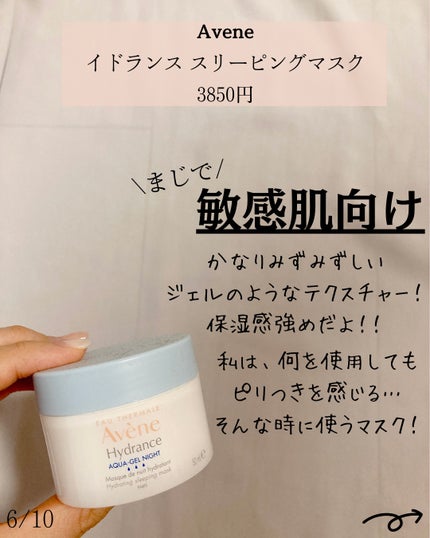 Avene
イドランス スリーピングマスク
3850円
\まじで/
敏感肌向け
かなりみずみずしい
ジェルのようなテクスチャー!
保湿感強めだよ!!
私は、何を使用しても
ピリつきを感じる…
そんな時に使うマスク!
EAU THERMALE
Avène
Hydrance
AQUA-GEL NIGHT
Masque de nuit hydratant
Hydrating sleeping mask
50 ml e
6/10